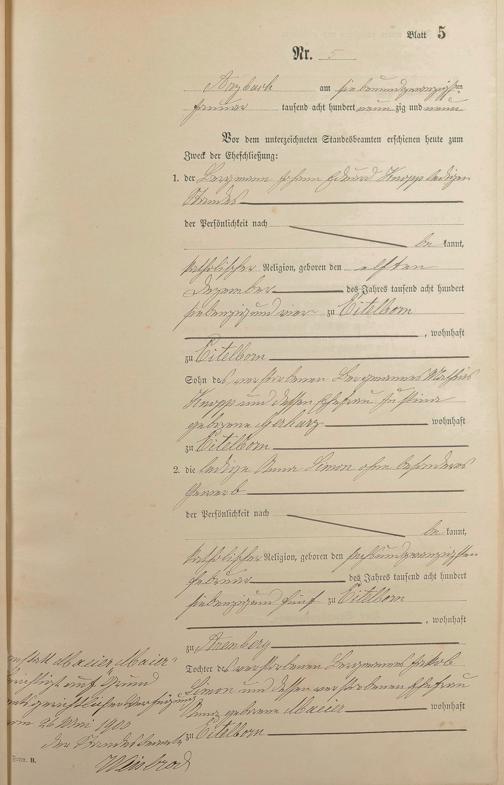 Blatt 5
Nr. 5
Arzbach am siebenundzwanzigsten
Januar tausend acht hundert neunzig und neun
Vor dem unterzeichneten Standesbeamten erschienen heute zum
Zweck der Eheschließung:
1. der Bergmann Johann Eduard Knopp ledigen
Standes
der Persönlichkeit nach
be kannt,
katholischer Religion, geboren den elften
Dezember des Jahres tausend acht hundert
siebenzig und vier zu Eitelborn
, wohnhaft
zu Eitelborn
Sohn des verstorbenen Bergmannes Mathias
Knopp und dessen Ehefrau Justina
geborene Gerharz wohnhaft
zu Eitelborn
2. die ledige Anna Simon ohne besonderes
Gewerb
der Persönlichkeit nach
be kannt,
katholischer Religion, geboren den sechsundzwanzigsten
Februar des Jahres tausend acht hundert
siebenzig und fünf zu Eitelborn
, wohnhaft
zu Arenberg
Tochter des verstorbenen Bergmannes Jakob
Simon und dessen verstorbenen Ehefrau
Anna geborene Maeier wohnhaft
zu Eitelborn
anstatt Maeier, Maier
berichtigt auf Grund
gerichtlicher Verfügung
vom 26 Mai 1900
Der Standesbeamte
Form. B.